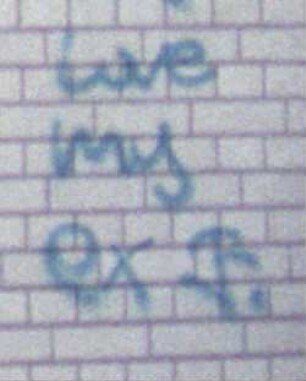 love
my
ex